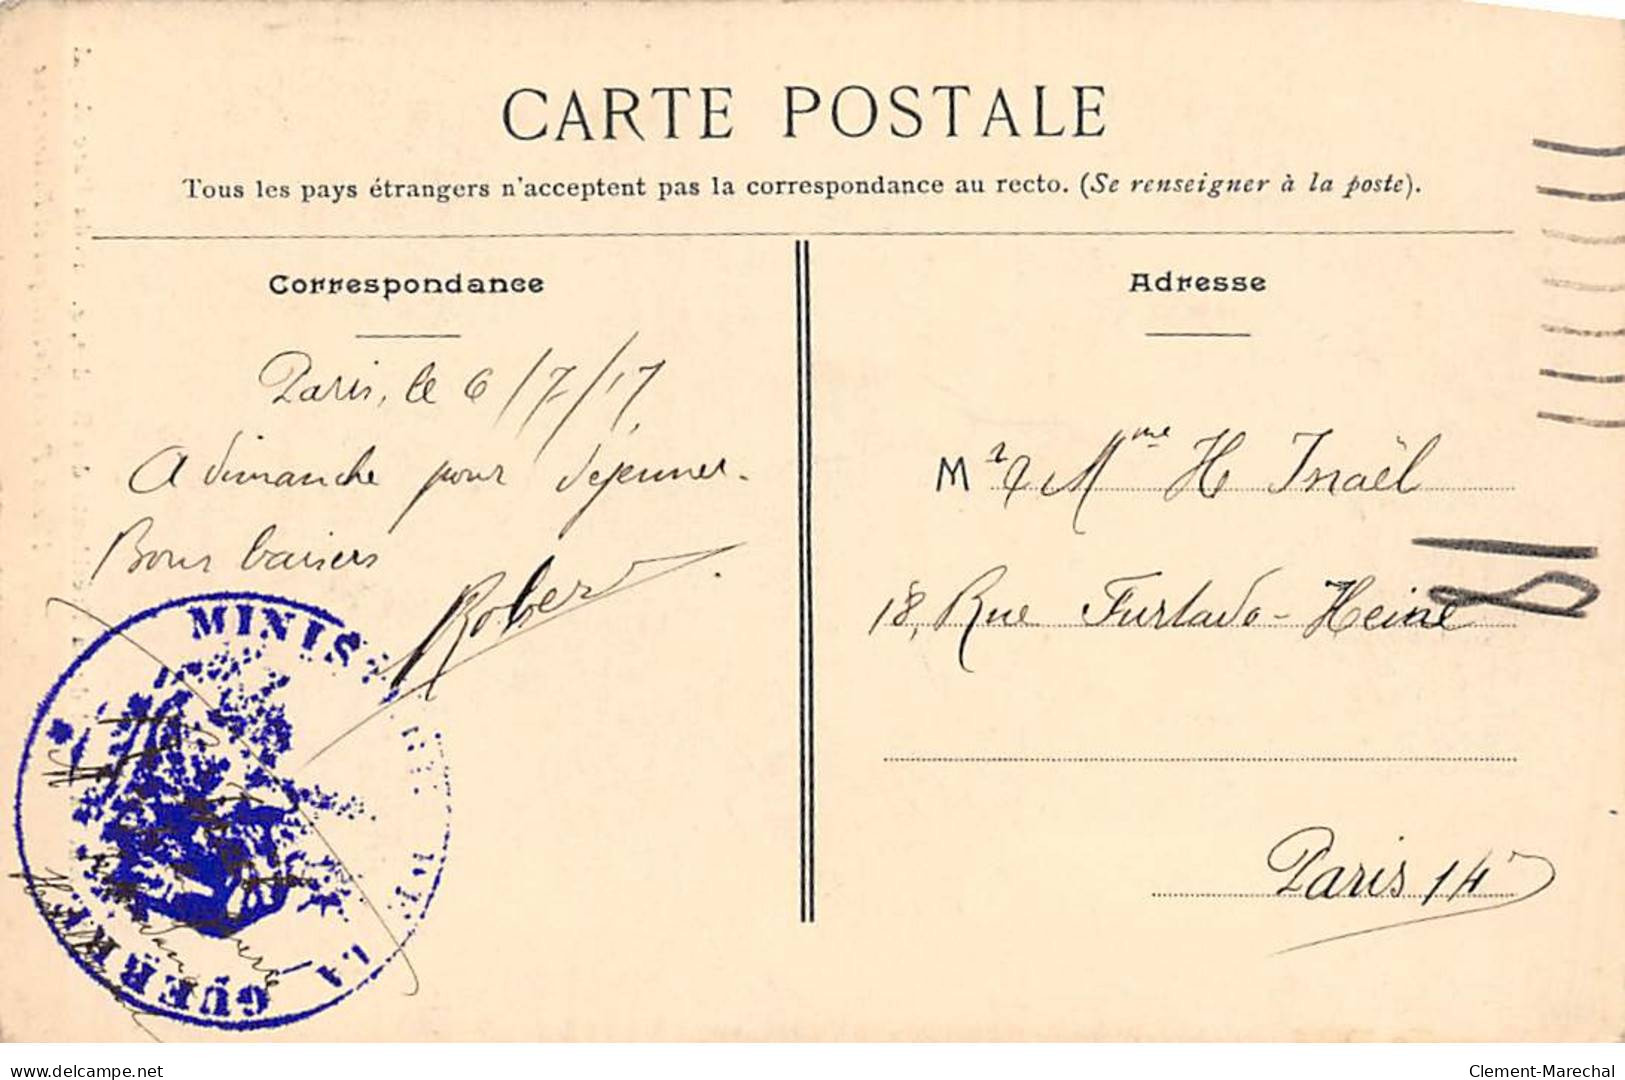 CARTE POSTALE
Tous les pays étrangers n'acceptent pas la correspondance au recto. (Se renseigner à la poste).
Correspondance
Paris, le 6/7/17
A dimanche pour déjeuner.
Bons baisers
Robert
MINIS
LA
GUERRE
Adresse
Mr & Mme H Israël
18, Rue Furtado-Heine
Paris 14
delcampe.net
Clement-Marechal